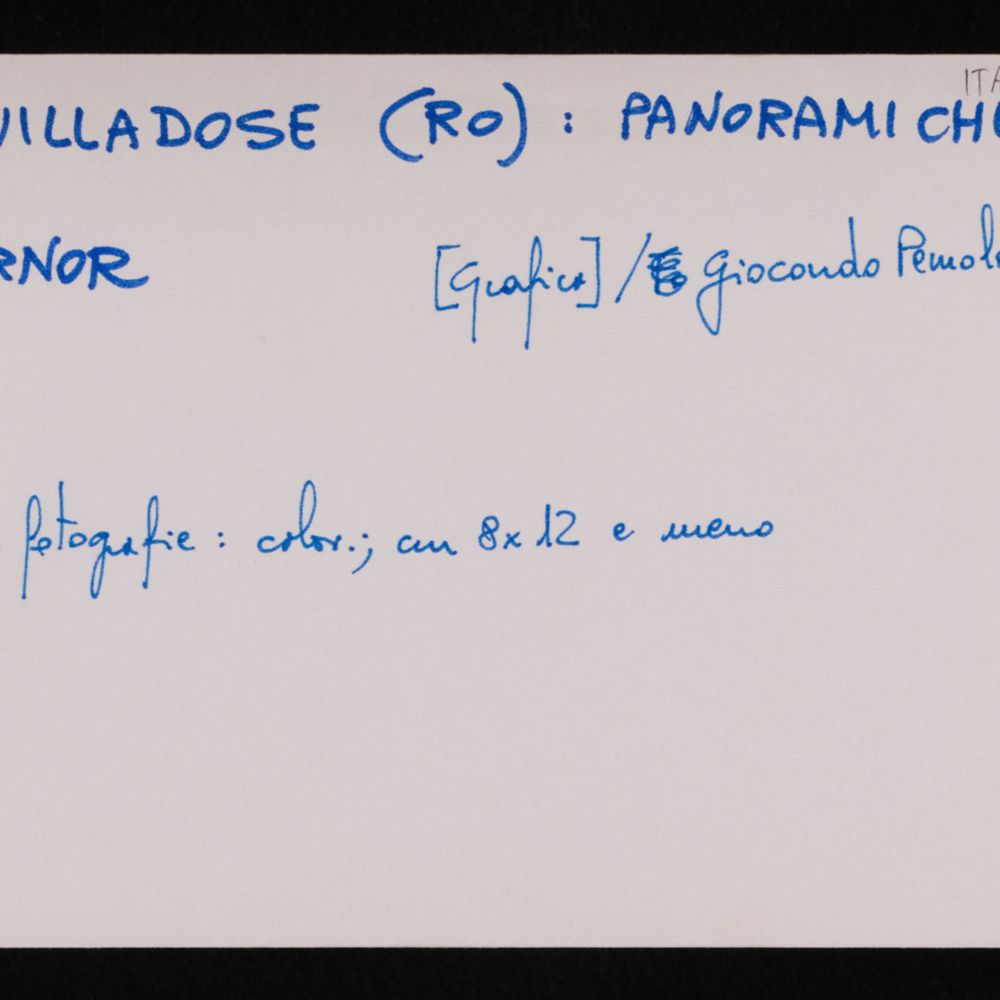 ITA
VILLADOSE (RO) : PANORAMICHE
RNOR [Grafica] / Giocondo Pemol
fotografie : color.; cm 8x12 e meno